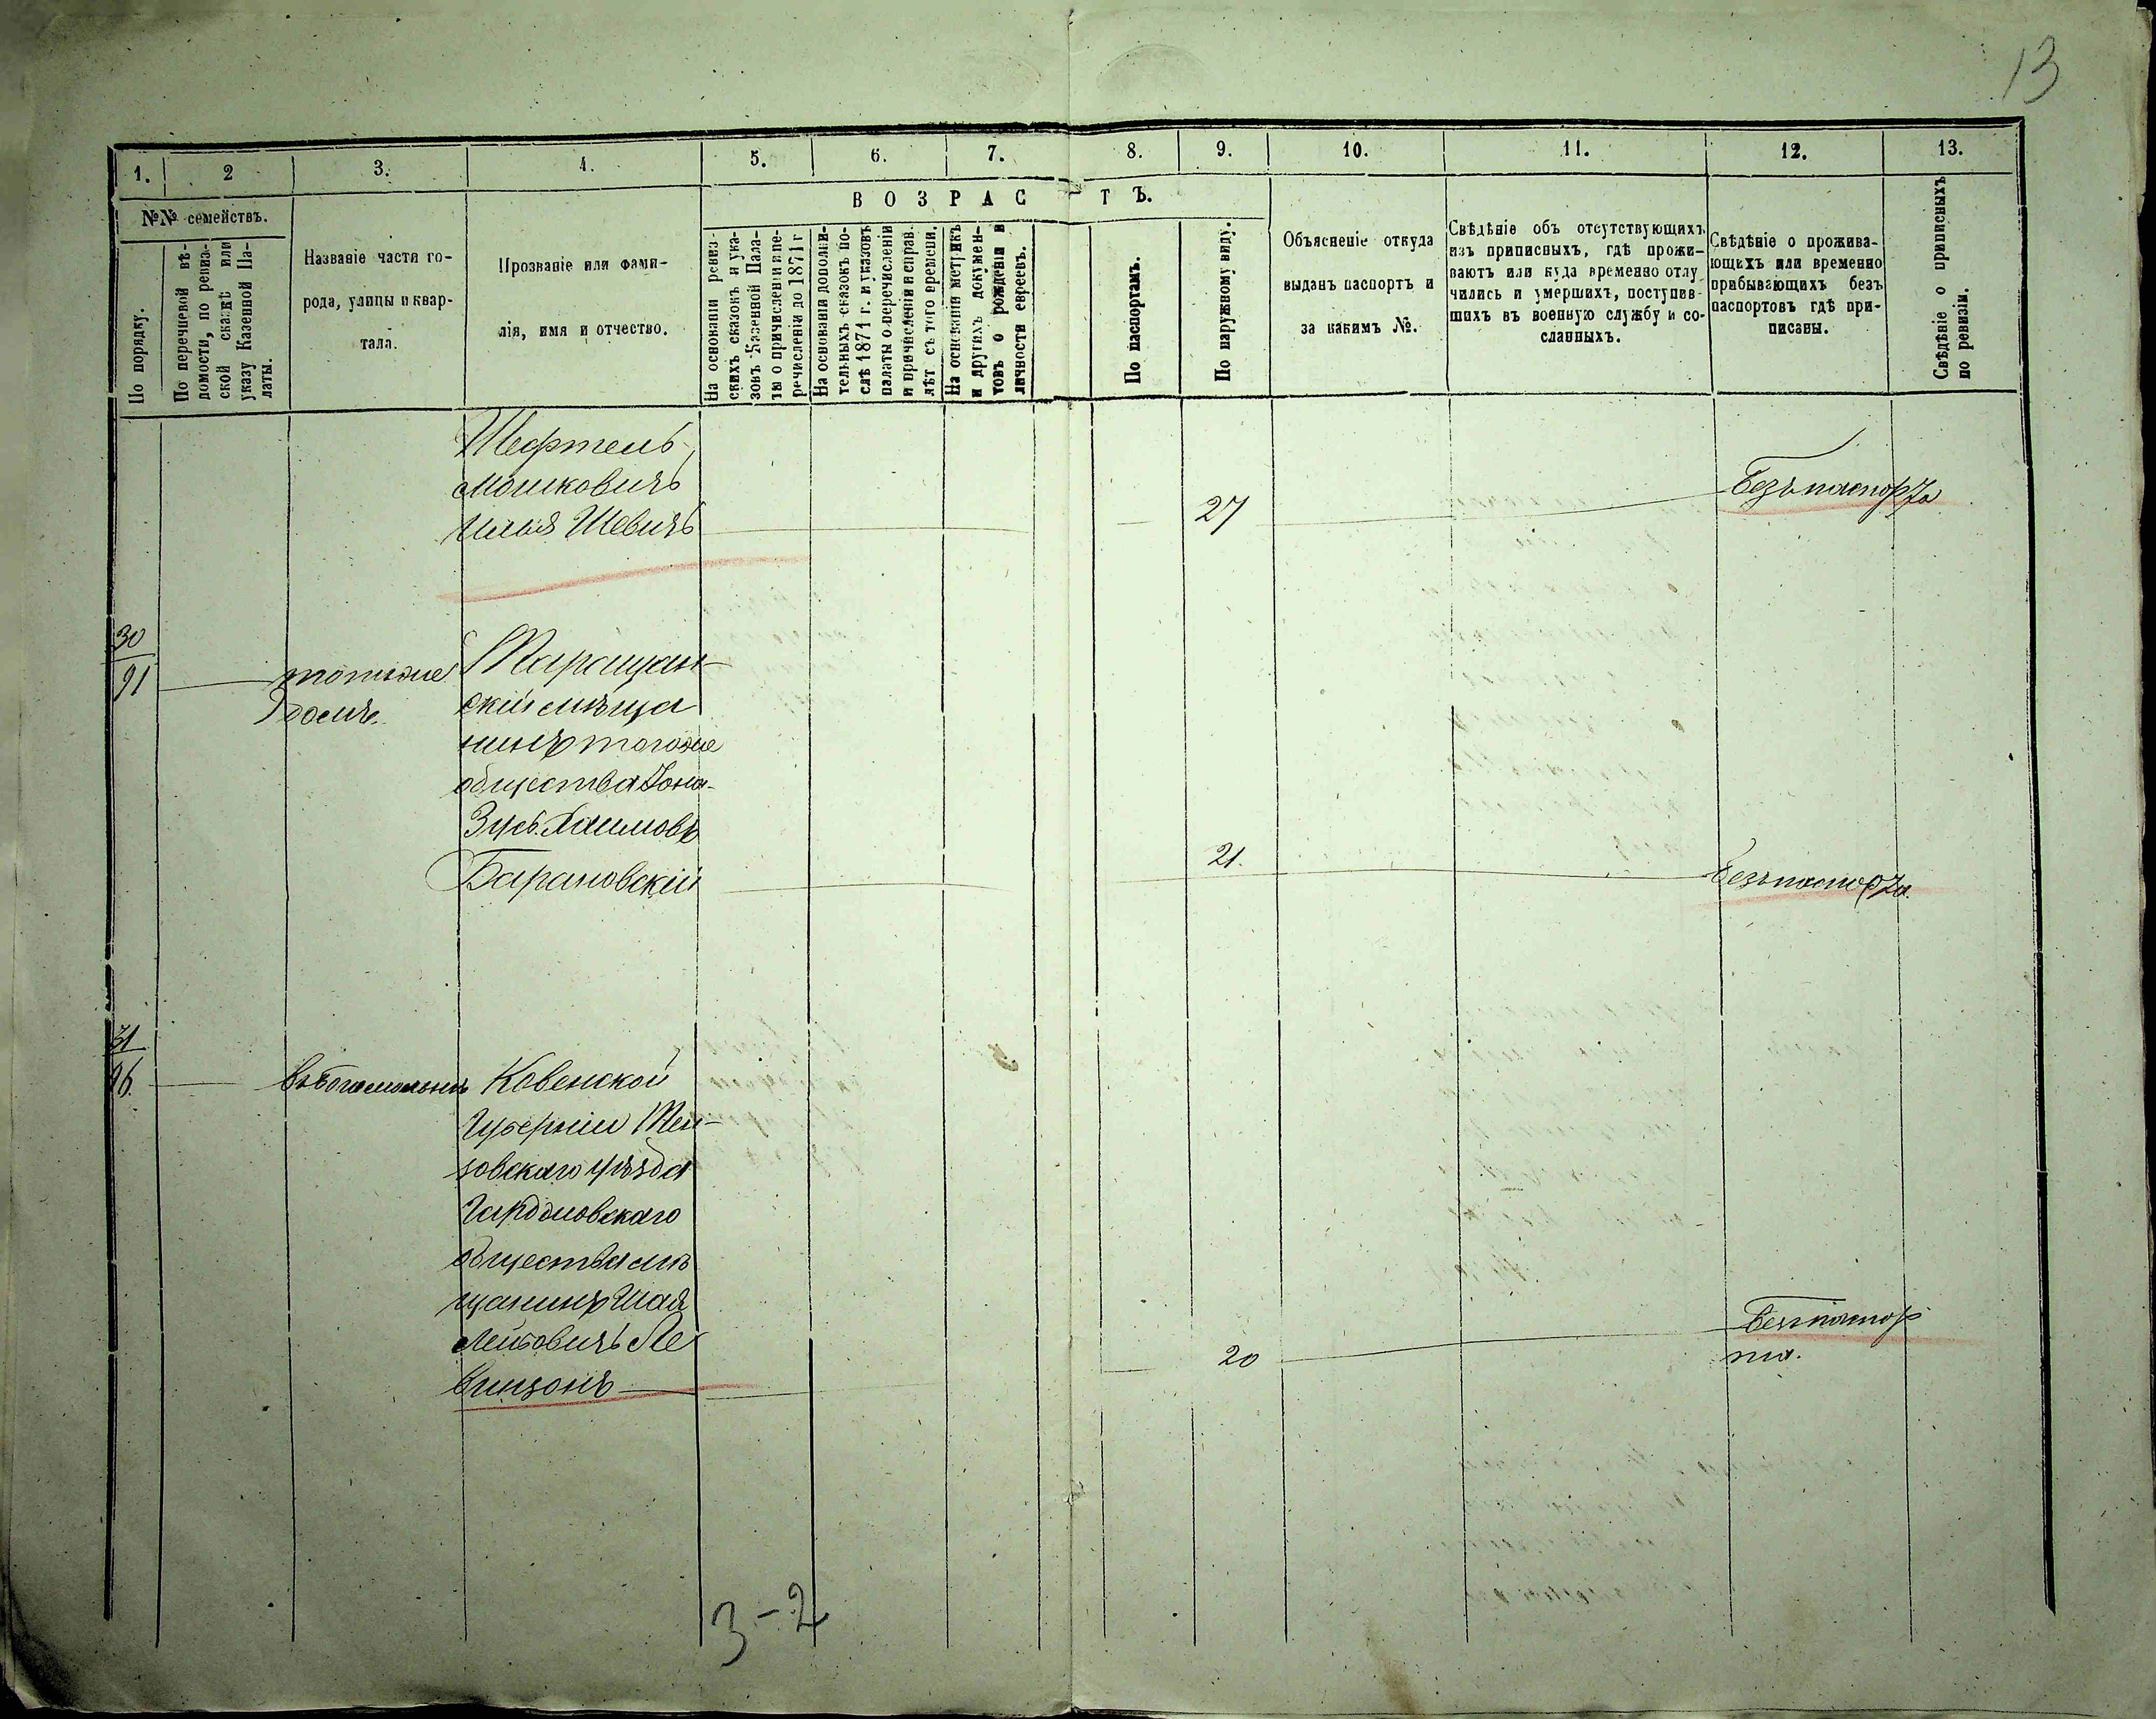 13
1. 2 3. 4. 5. 6. 7. 8. 9. 10. 11. 12. 13.
№№ семействъ.
По порядку.
По перечневой вѣ-
домости, по ревиз-
ской сказкѣ или
указу Казенной Па-
латы.
Названіе части го-
рода, улицы и квар-
тала.
Прозваніе или фами-
лія, имя и отчество.
ВОЗРАСТЪ.
На основаніи ревиз-
скихъ сказокъ и ука-
зовъ Казенной Пала-
ты о причисленіи и пе-
речисленіи до 1871 г
На основаніи дополни-
тельныхъ сказокъ по-
слѣ 1871 г. и указовъ
палаты о перечисленіи
и причисленіи и справ.
лѣт съ того времени.
На основаніи метрикъ
и другихъ докумен-
товъ о рожденіи и
личности евреевъ.
По паспортамъ.
По наружному виду.
Объясненіе откуда
выданъ паспортъ и
за какимъ №.
Свѣдѣніе объ отсутствующихъ
изъ приписныхъ, гдѣ прожи-
ваютъ или куда временно отлу
чились и умершихъ, поступив-
шихъ въ военную службу и со-
сланныхъ.
Свѣдѣніе о прожива-
ющихъ или временно
прибывающихъ безъ
паспортовъ гдѣ при-
писаны.
Свѣдѣніе о приписныхъ
по ревизіи.
Шефтель
Мошковичъ
27
Безъ паспорта
30
91
томъ же
домѣ
Таращан-
скій мѣща
нинъ того же
общества Іона-
Зусь Хаимовъ
Барановскій
21.
Безъ паспорта.
31
96.
Ковенской
Губерніи Тел-
шовскаго уѣзда
общества мѣ
щанинъ Шая
Лейбовичъ Ле
винзонъ
20
Безъ паспор
та.
3-2